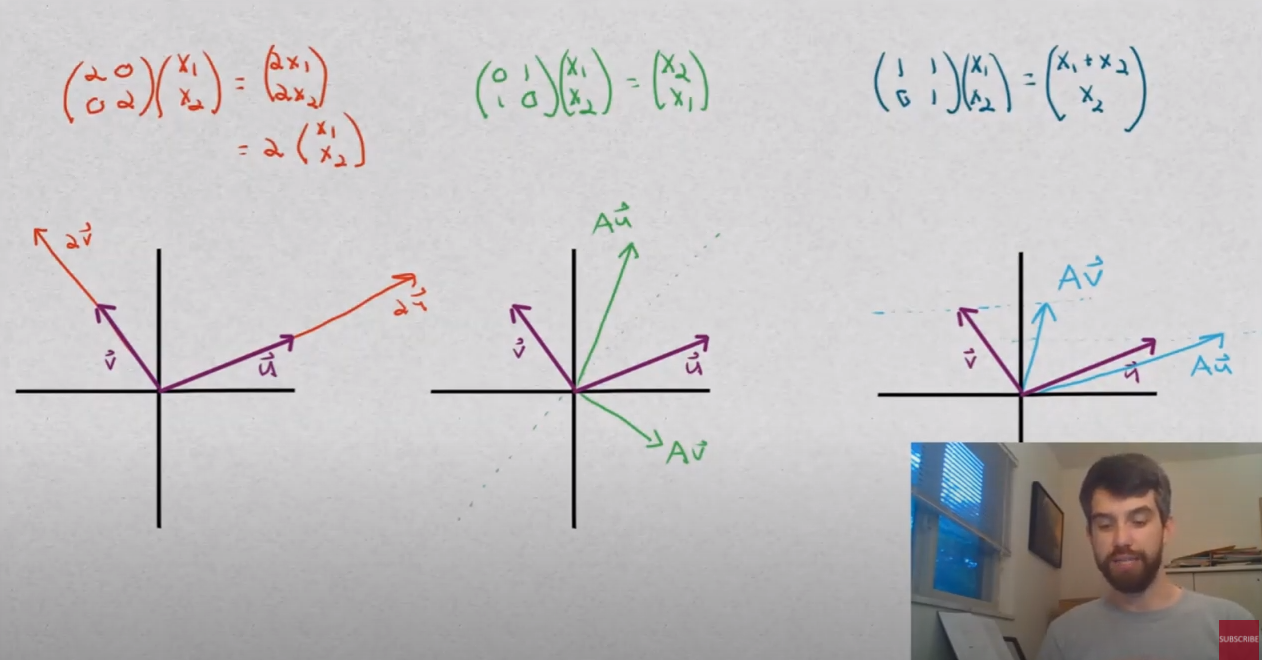 (2 0
0 2)(x₁
x₂) = (2x₁
2x₂)
= 2 (x₁
x₂)
(0 1
1 0)(x₁
x₂) = (x₂
x₁)
(1 1
0 1)(x₁
x₂) = (x₁ + x₂
x₂)
2v⃗
v⃗
u⃗
2u⃗
Au⃗
v⃗
u⃗
Av⃗
Av⃗
v⃗
u⃗
Au⃗
SUBSCRIBE